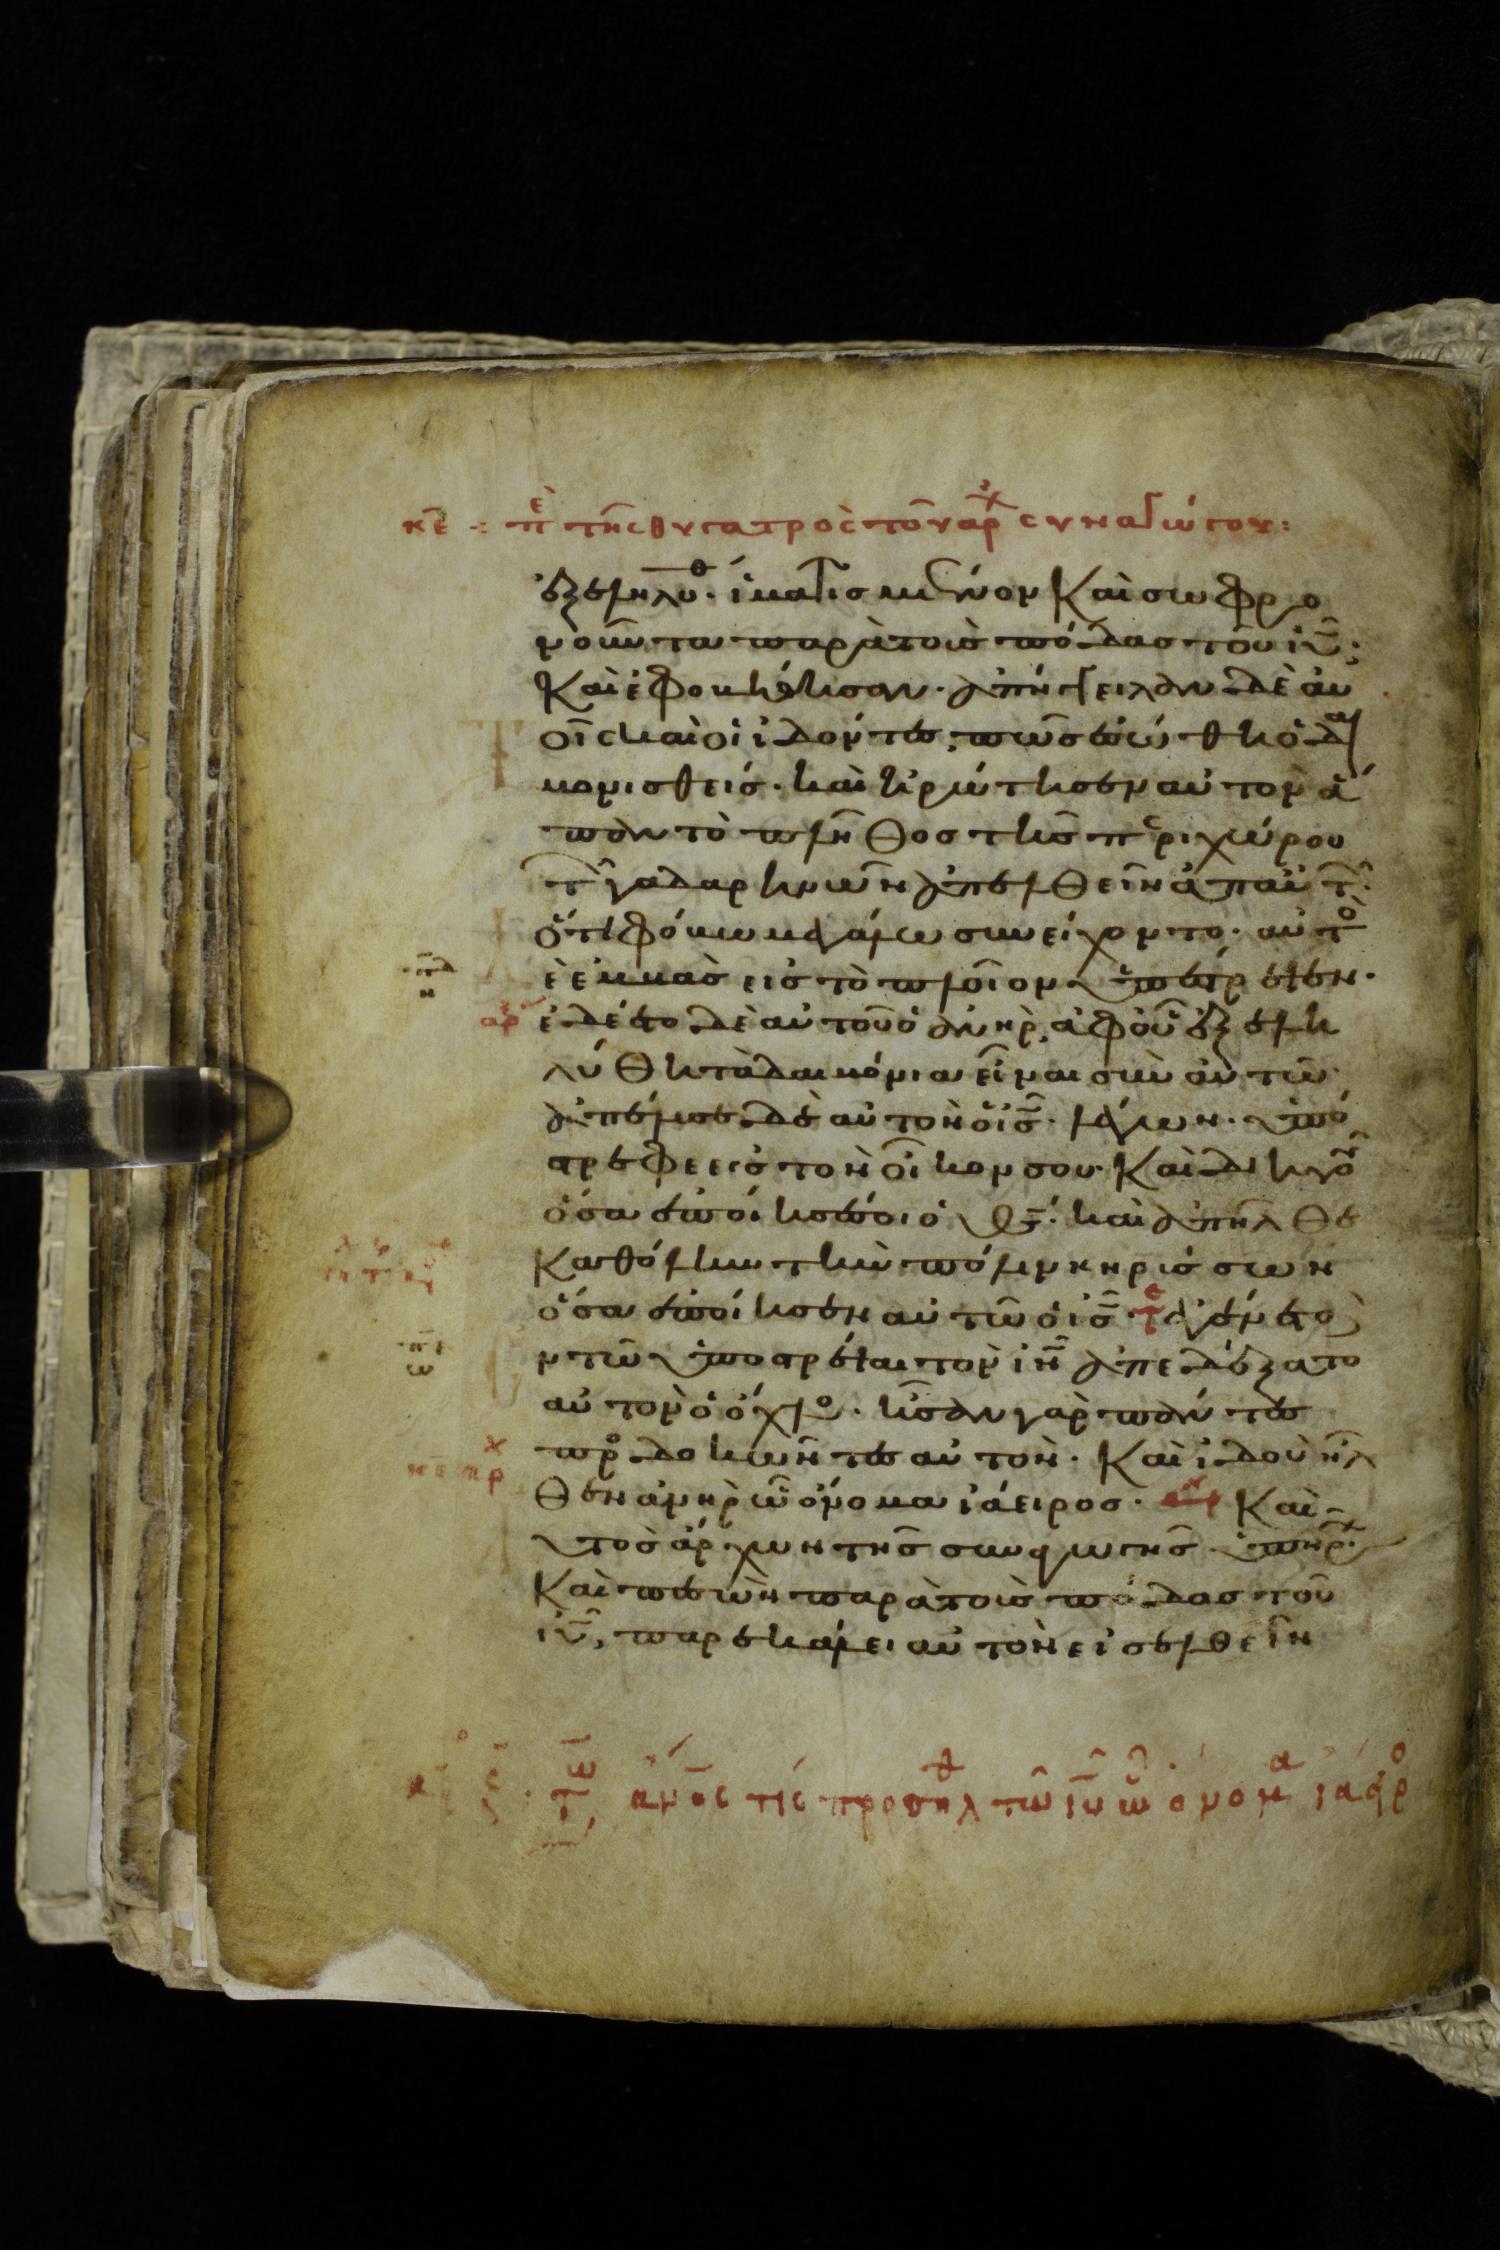 κε̄ · πὲ τῆς θυγατρὸς τοῦ ἀρχ συναγώγου:
ἐξεληλύθ· ἱματισμένον καὶ σωφρο
νοῦντα παρὰ τοὺς πόδας τοῦ ιῦ·
καὶ ἐφοβήθησαν· ἀπήγγειλαν δὲ αὐ
οῖς καὶ οἱ ἰδόντες, πῶς ἐσώθη ὁ δαι
μονισθείς· καὶ ἠρώτησεν αὐτὸν ἅ
παν τὸ πλῆθος τῆς περιχώρου
τῶν γαδαρηνῶν ἀπελθεῖν ἀπ αὐτῶν·
ὅτι φόβω μεγάλω συνείχοντο· αὐτὸ
ἐ ἐμβὰς εἰς τὸ πλοῖον ὑπέστρεψεν·
ἐδέετο δὲ αὐτοῦ ὁ ἀνὴρ, ἀφ οὗ ἐξελη
λύθη τὰ δαιμόνια εἶναι σὺν αὐτῶ·
ἀπέλυσε δὲ αὐτὸν ὁ ις̄· λέγων· ὑπό
στρεφε εἰς τὸν οἶκον σου· καὶ διηγοῦ
ὅσα ἐποίησέ σοι ὁ θς̄· καὶ ἀπῆλθε
καθ ὅλην τὴν πόλιν κηρύσσων
ὅσα ἐποίησεν αὐτῶ ὁ ις̄· τε ἐγένετο
ν τῶ ὑποστρέψαι τὸν ιν̄ ἀπεδέξατο
αὐτὸν ὁ ὄχλο· ἦσαν γὰρ πάντες
προσδοκῶντες αὐτόν· καὶ ἰδοὺ ἦλ
θεν ἀνὴρ ὧ ὄνομα ἰάειρος· αρχ καὶ
υτὸς ἄρχων τῆς συναγωγῆς ὑπῆρχ·
καὶ πεσὼν παρὰ τοὺς πόδας τοῦ
ιῦ, παρεκάλει αὐτὸν εἰσελθεῖν
τῶ ἀνος τίς προσηλθ τῶ ιυ ὧ ὄνομα ἰάειρο